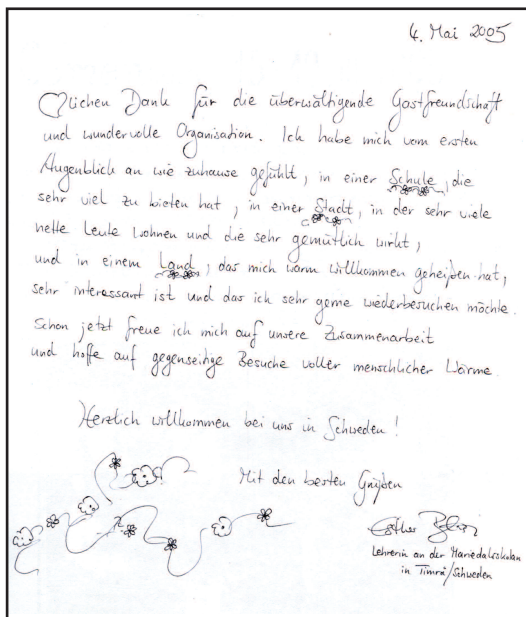 4. Mai 2005
♡lichen Dank für die überwältigende Gastfreundschaft
und wundervolle Organisation. Ich habe mich vom ersten
Augenblick an wie zuhause gefühlt, in einer Schule, die
sehr viel zu bieten hat, in einer Stadt, in der sehr viele
nette Leute wohnen und die sehr gemütlich wirkt,
und in einem Land, das mich warm willkommen geheißen hat,
sehr interessant ist und das ich sehr gerne wiederbesuchen möchte.
Schon jetzt freue ich mich auf unsere Zusammenarbeit
und hoffe auf gegenseitige Besuche voller menschlicher Wärme
Herzlich willkommen bei uns in Schweden!
Mit den besten Grüßen
Esther
Lehrerin an der Mariedalsskolan
in Timrå/Schweden